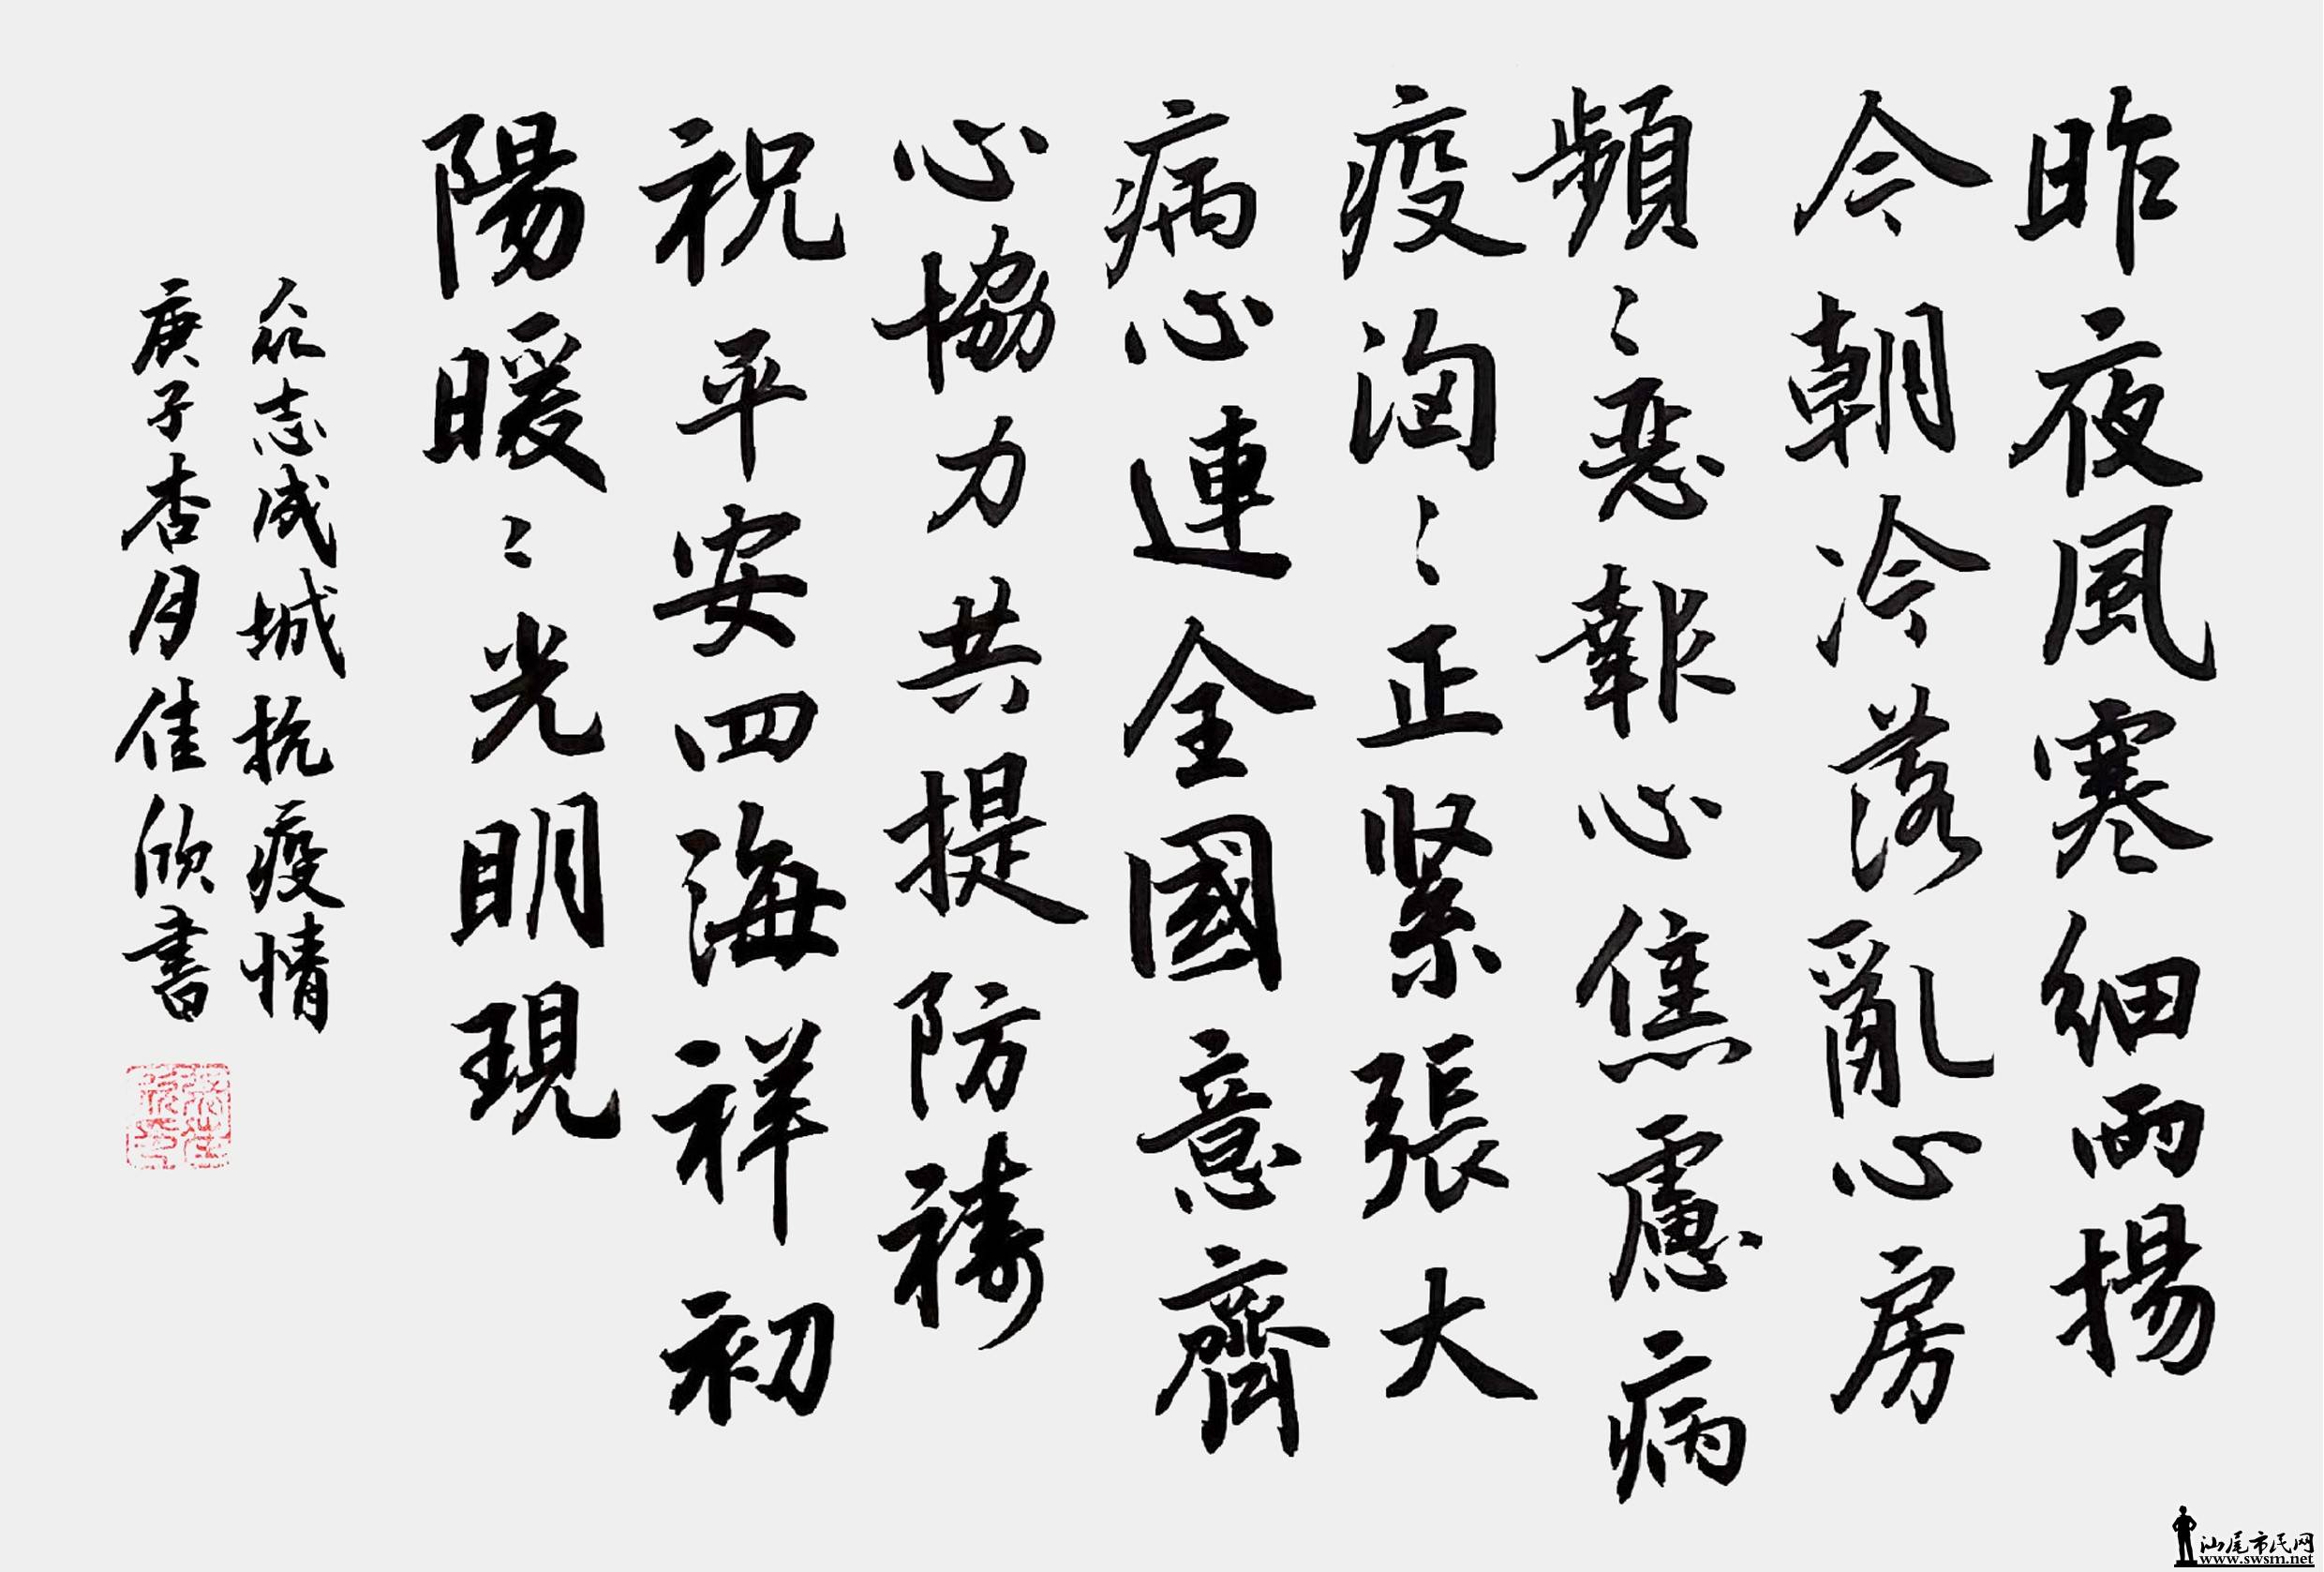 昨夜風寒細雨揚
今朝冷落亂心房
頻〻惡報心焦慮病
疫洶〻正緊張大
病心連全國意齊
心協力共提防禱
祝平安四海祥初
陽暖〻光明現
众志成城抗疫情
庚子杏月佳欣書
汕尾市民网
www.swsm.net